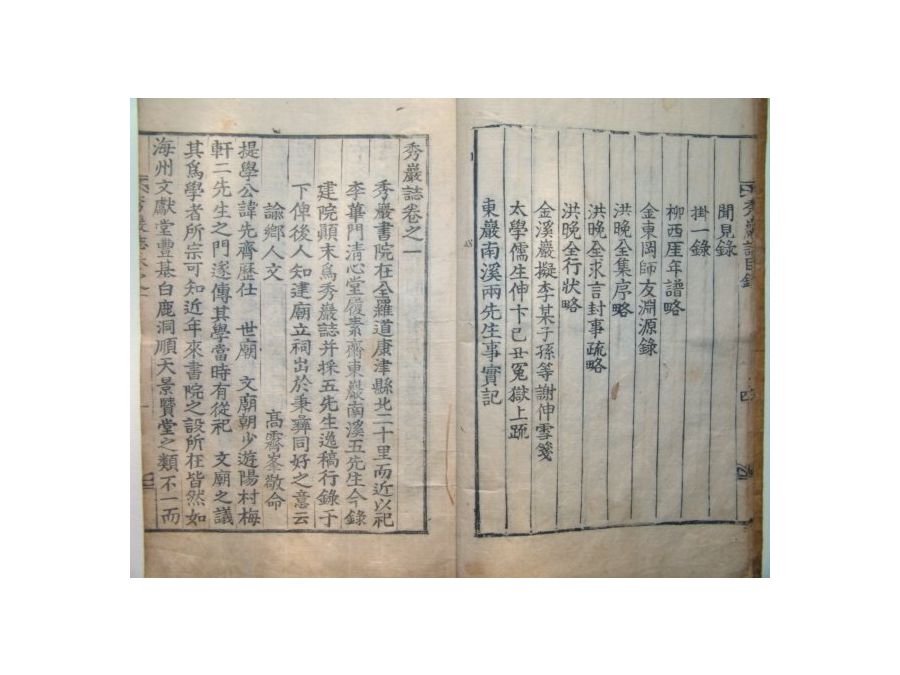 秀巖誌目錄
聞見錄
掛一錄
柳西厓年譜略
金東岡師友淵源錄
洪晚全集序略
洪晚全求言封事疏略
洪晚全行狀略
金溪巖擬李某子孫等謝伸雪箋
太學儒生伸卞己丑冤獄上疏
東巖南溪兩先生事實記
秀巖誌卷之一
秀巖書院在全羅道康津縣北二十里而近以祀
李華門清心堂履素齋東巖南溪五先生今錄
建院顛末爲秀巖誌并採五先生逸稿行錄于
下俾後人知建廟立祠出於秉彝同好之意云
諭鄉人文
高霽峯敬命
提學公諱先齊歷仕 世廟 文廟朝少遊陽村梅
軒二先生之門遂傳其學當時有從祀 文廟之議
其爲學者所宗可知近年來書院之設所在皆然如
海州文獻堂豐基白鹿洞順天景賢堂之類不一而